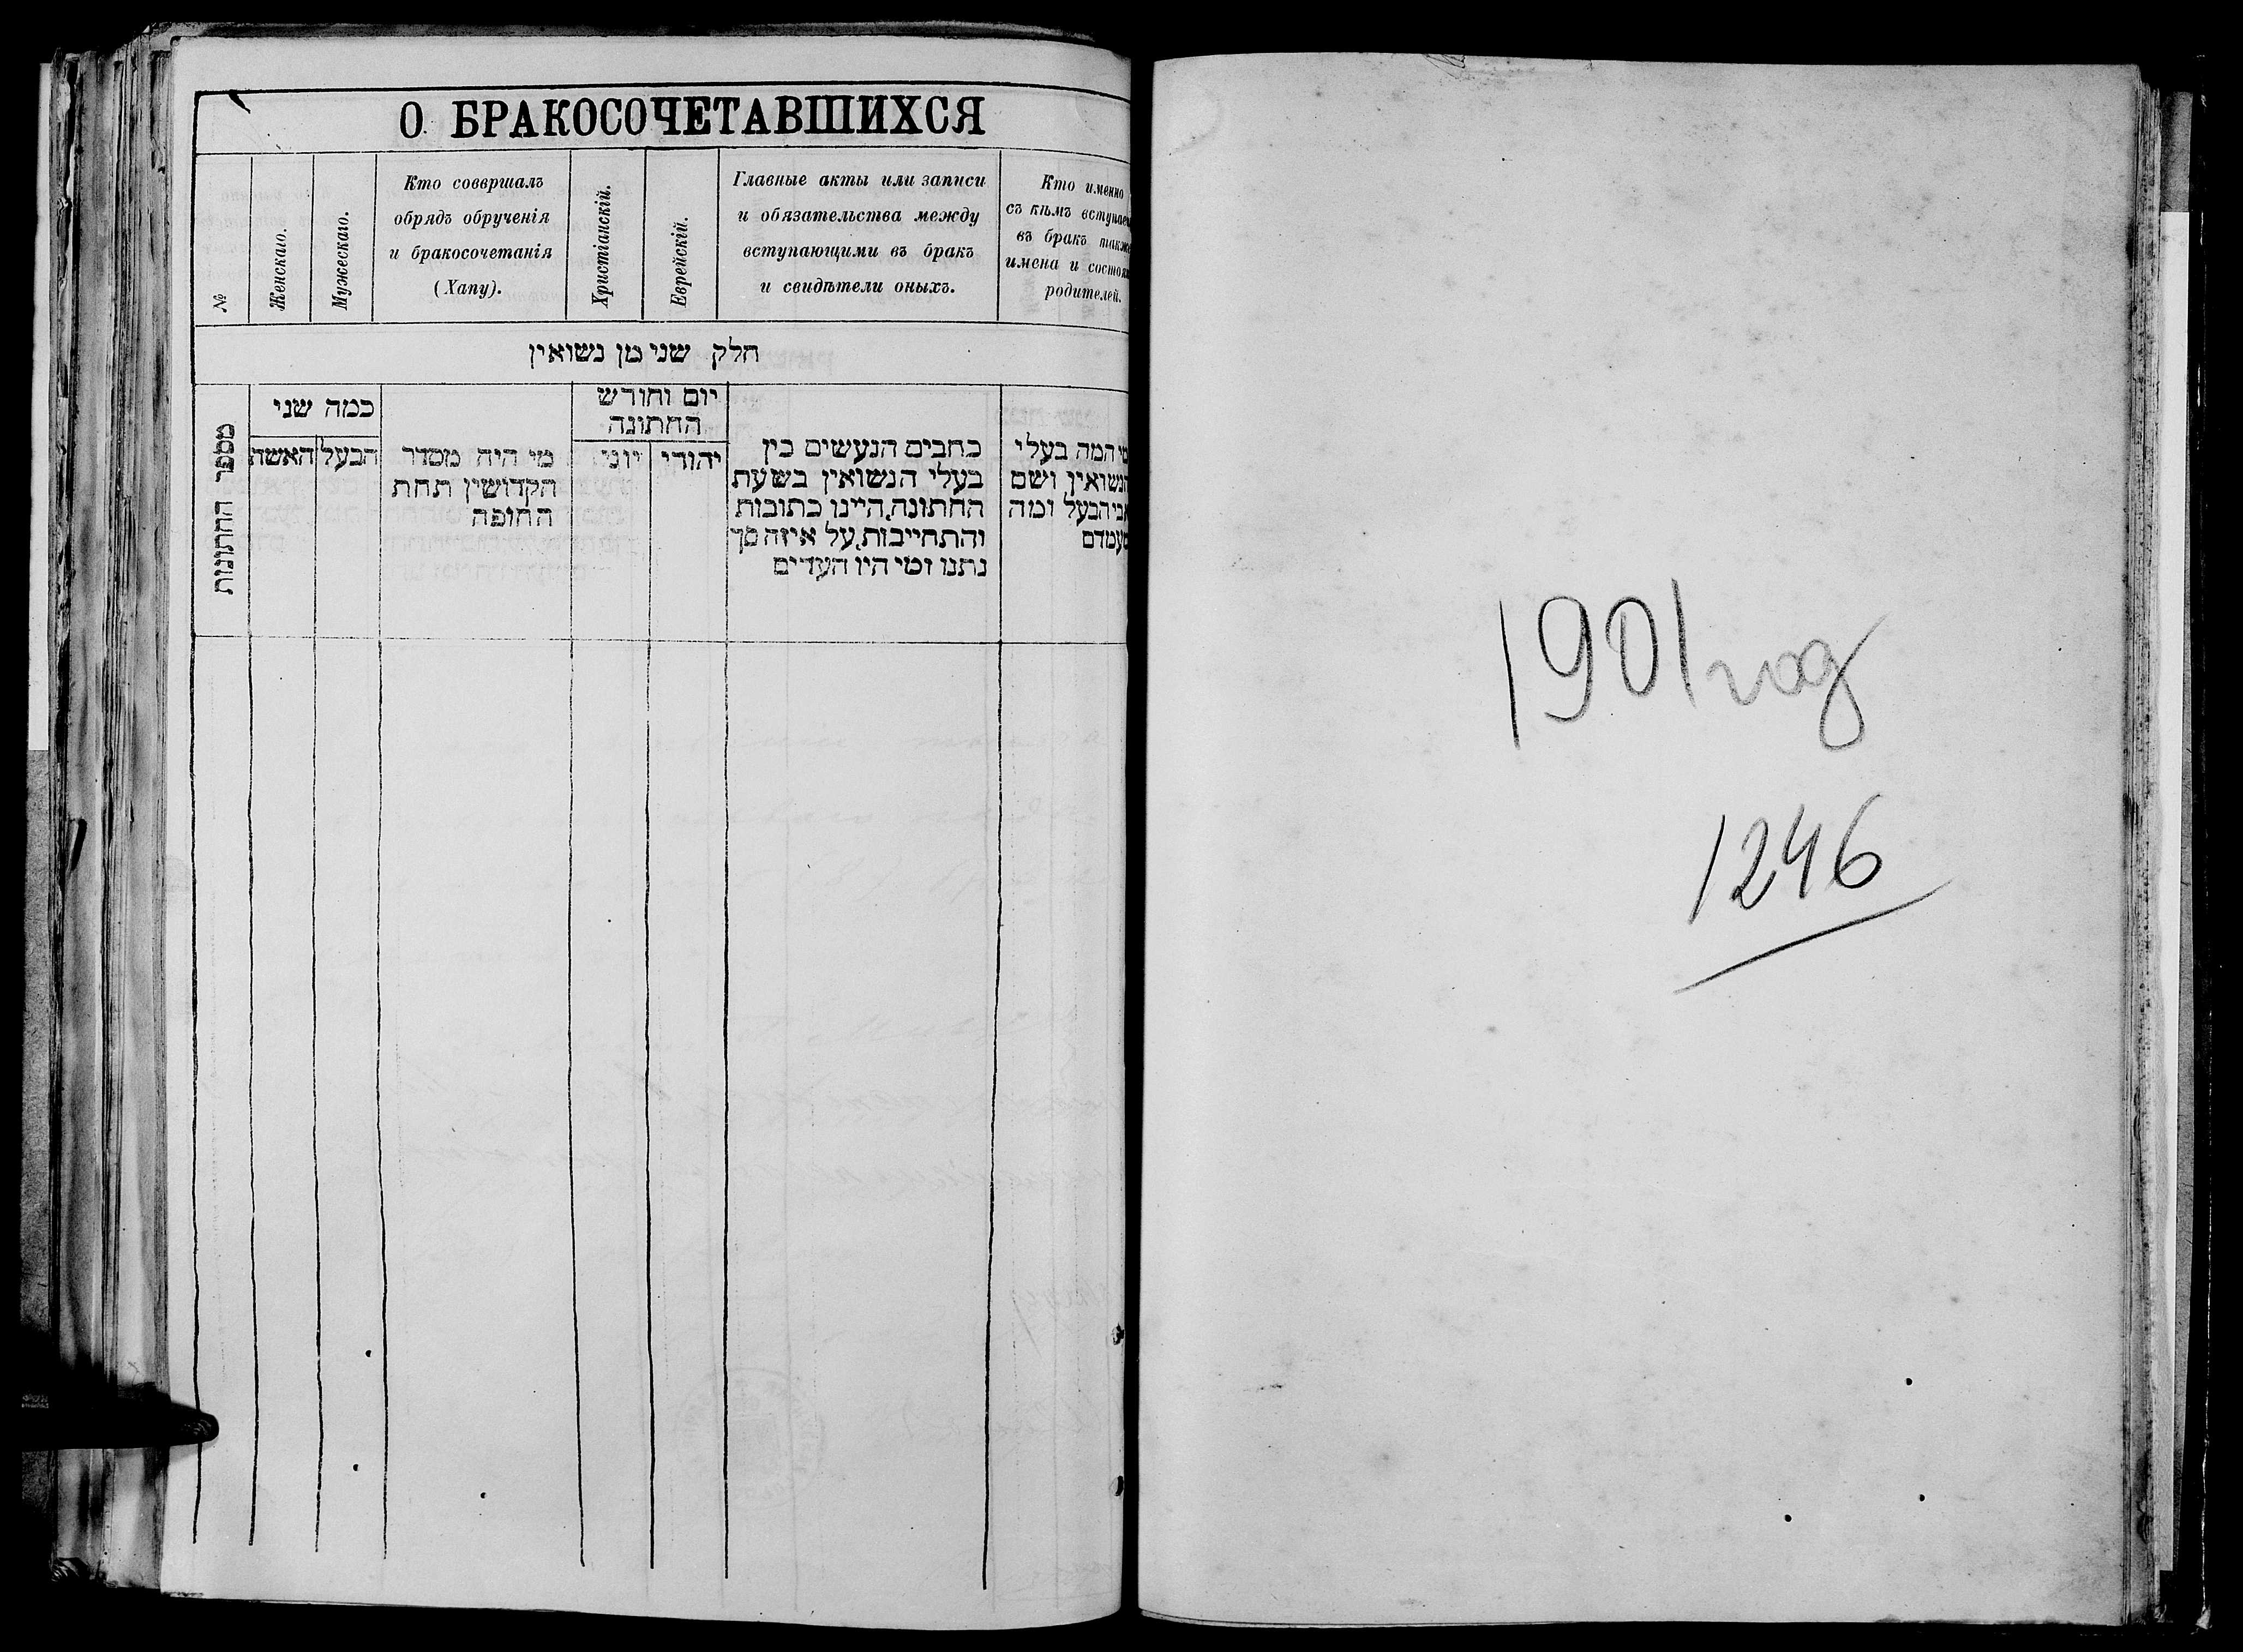 О БРАКОСОЧЕТАВШИХСЯ
№
Женскаго.
Мужескаго.
Кто соввршалъ
обрядъ обрученія
и бракосочетанія
(Хапу).
Христіанскій.
Еврейскій.
Главные акты или записи
и обязательства между
вступающими въ бракъ
и свидѣтели оныхъ.
Кто именно
съ кѣмъ вступае
въ бракъ также
имена и состоя
родителей.
חלק שני מן נשואין
מספר החתונות
כמה שני
האשה
הבעל
מי היה מסדר
הקדושין תחת
החופה
יום וחודש
החתונה
יוני
יהודי
כתבים הנעשים בין
בעלי הנשואין בשעת
החתונה, היינו כתובות
והתחייבות, על איזה סך
נתנו ומי היו העדים
מי המה בעלי
הנשואין ושם
אבי הבעל ומה
מעמדם
1901 год
1246